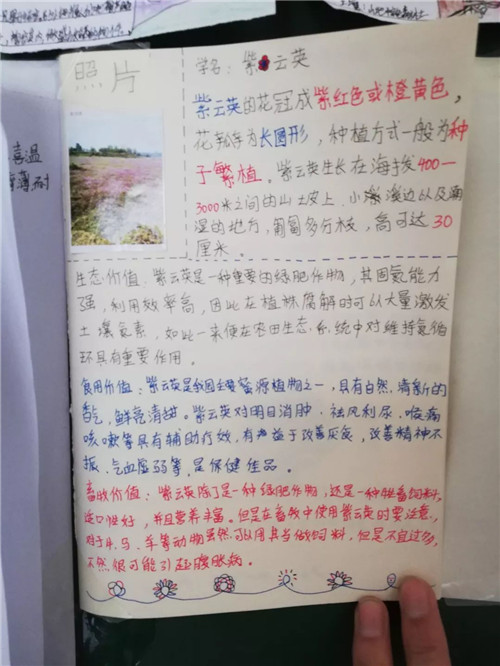 照片
学名：紫云英
紫云英的花冠成紫红色或橙黄色，
花轮序为长圆形，种植方式一般为种
子繁植。紫云英生长在海拔400一
3000米之间的山土皮上、小溪溪边以及潮
湿的地方，匍匐多分枝，高可达30
厘米。
生态价值：紫云英是一种重要的绿肥作物，其固氮能力
强，利用效率高，因此在植株腐解时可以大量激发
土壤氮素，如此一来便在农田生态系统中对维持氮循
环具有重要作用。
食用价值：紫云英是我国主要蜜源植物之一，具有自然、清新的
香气，鲜亮清甜。紫云英对明目消肿、祛风利尿、喉痛
咳嗽等具有辅助疗效，有益于改善灰炙，改善精神不
振、气血虚弱等，是保健佳品。
畜牧价值：紫云英除了是一种绿肥作物，还是一种牲畜饲料，
适口性好，并且营养丰富。但是在畜牧中使用紫云英时要注意，
对于牛、马、羊等动物虽然可以用其当做饲料，但是不宜过多，
不然很可能引起腹胀病。
喜温
薄耐